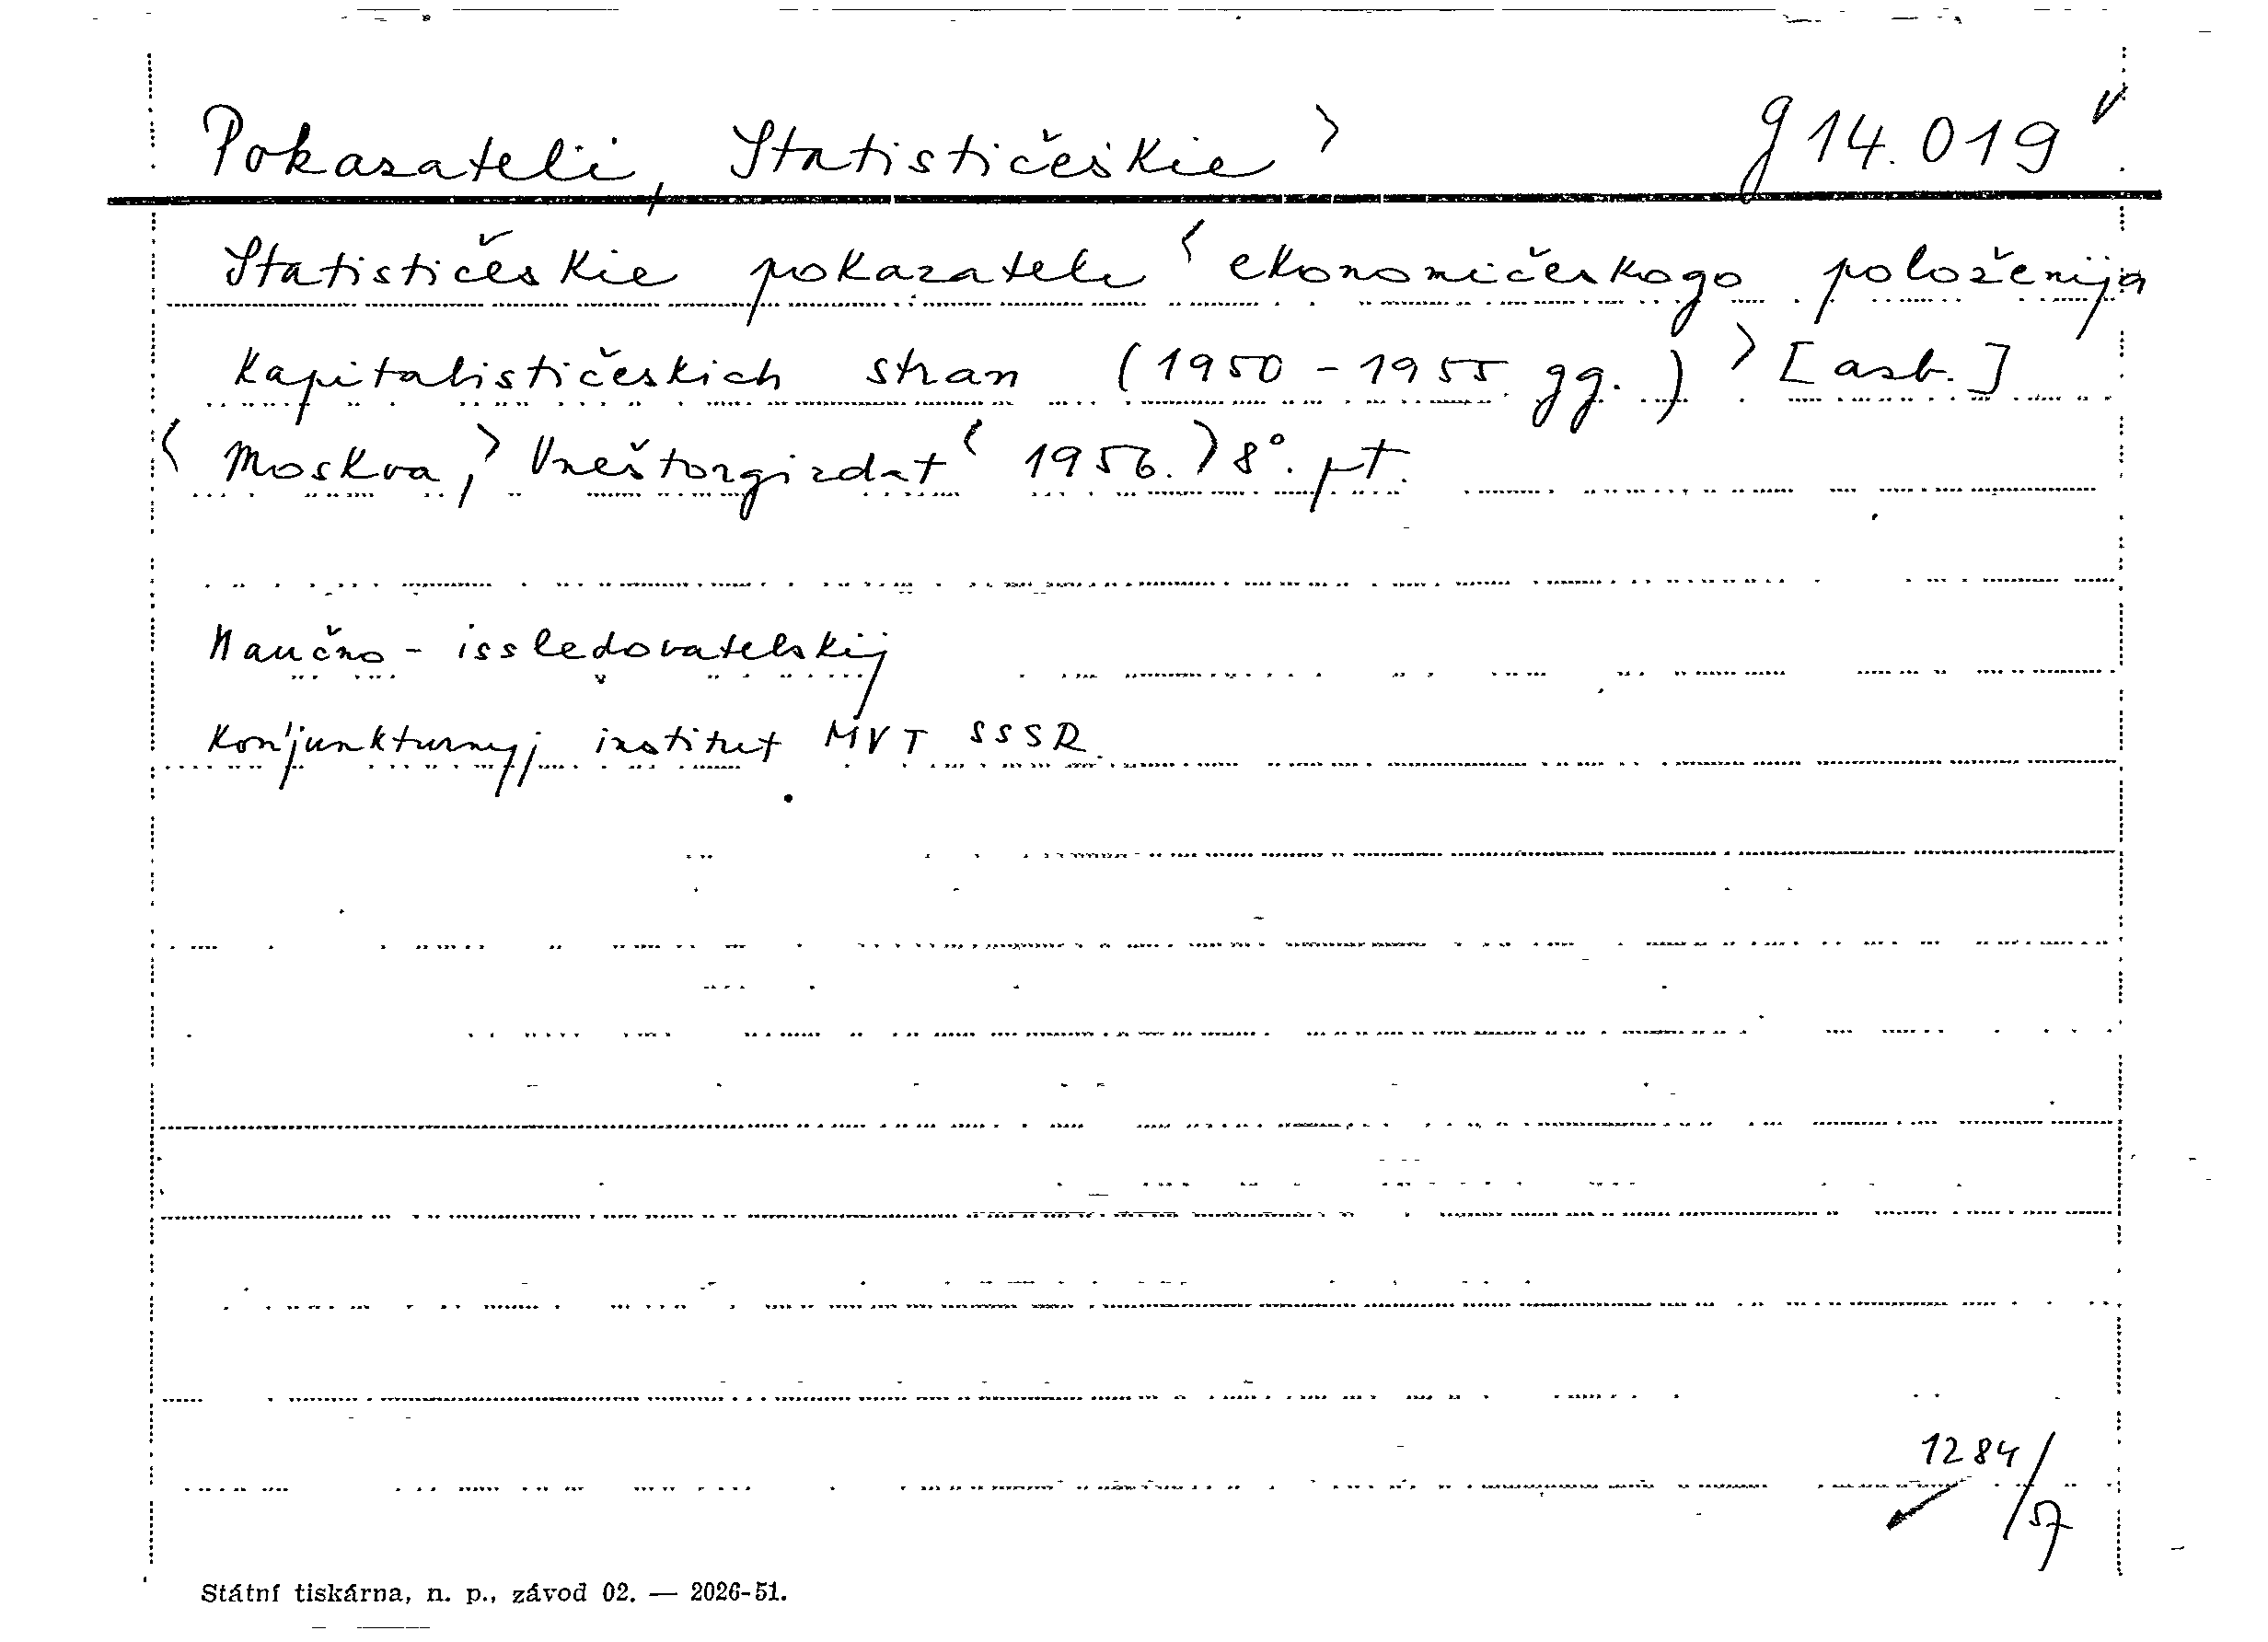 Pokazateli, Statističeskie > g 14.019
Statističeskie pokazateli < ekonomičeskogo položenija
kapitalističeskich stran (1950-1955 gg.) > [azb.]
< Moskva, > Vneštorgizdat < 1956. > 8°. pt.
Naučno-issledovatelskij
Kon'junkturnyj institut MVT SSSR.
1284/57
Státní tiskárna, n. p., závod 02. — 2026-51.